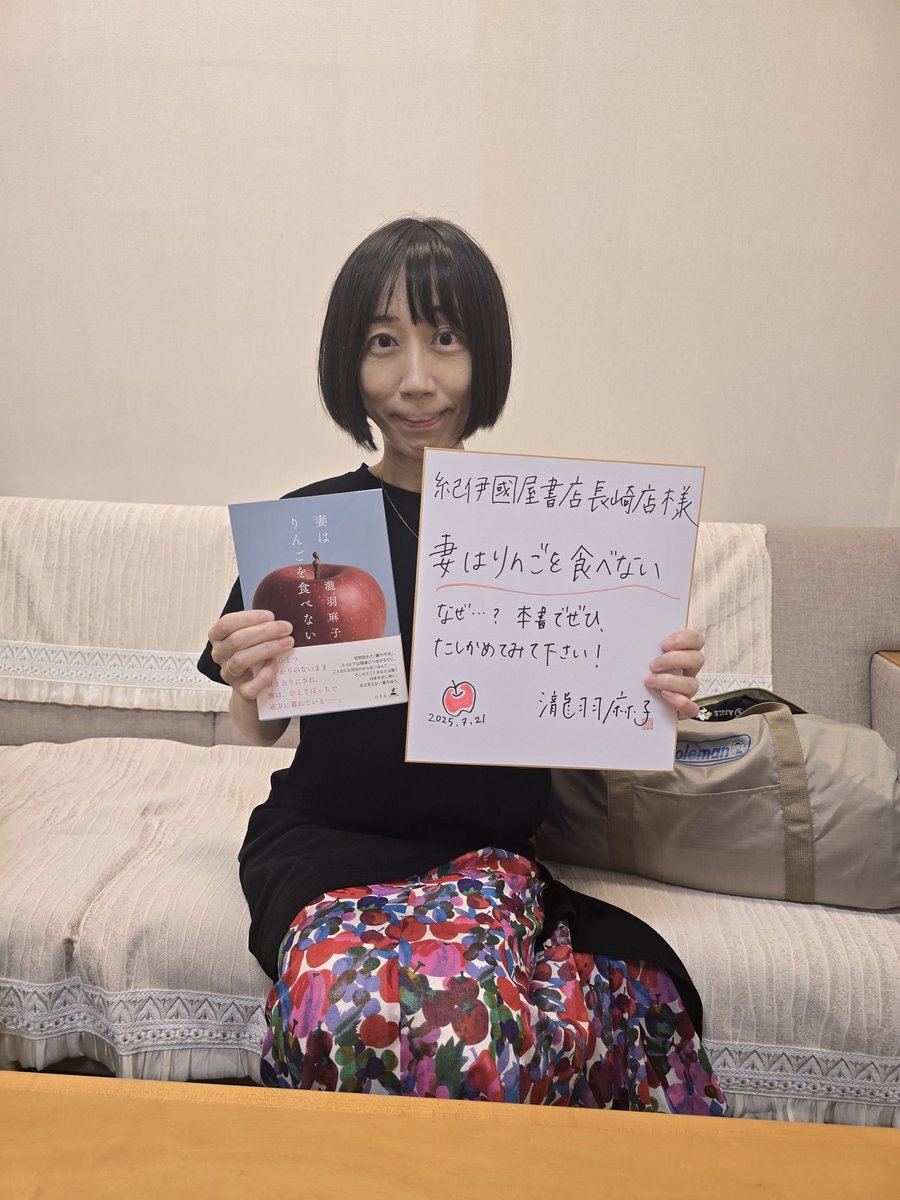 妻は
りんごを食べない
瀧羽麻子
僕は、ひとりぼっちで
途方に暮れている――。
紀伊國屋書店長崎店様
妻はりんごを食べない
なぜ…? 本書でぜひ、
たしかめてみて下さい!
2025.7.21
瀧羽麻子
Coleman
AIGLE